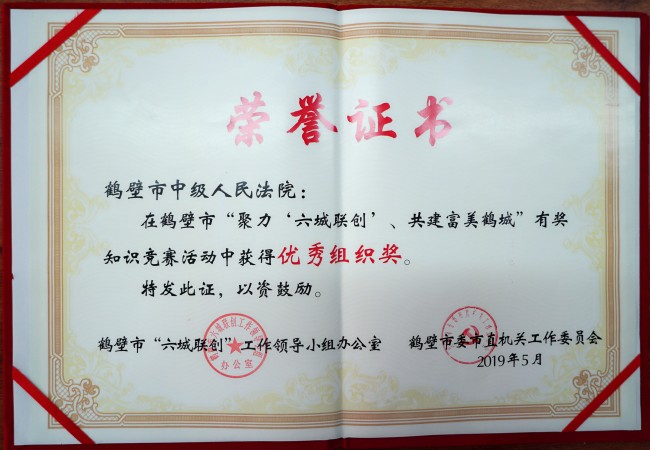 荣誉证书
鹤壁市中级人民法院：
在鹤壁市“聚力‘六城联创’、共建富美鹤城”有奖
知识竞赛活动中获得优秀组织奖。
特发此证，以资鼓励。
鹤壁市“六城联创”工作领导小组办公室
鹤壁市委市直机关工作委员会
2019年5月
办公室